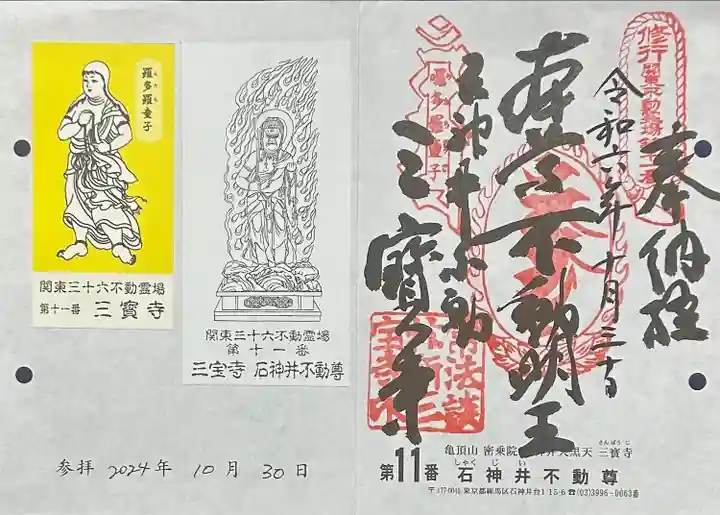 羅多羅童子
らたら
関東三十六不動霊場
第十一番 三寳寺
関東三十六不動霊場
第十一番
三宝寺 石神井不動尊
参拝 2024年 10月 30日
奉納経
令和六年十月三十日
本尊不動明王
石神井不動
三寳寺
羅多羅童子
亀頂山 密乗院
大黒天 三寳寺
さんぽうじ
しゃくじい
第11番 石神井不動尊
〒177-0045 東京都練馬区石神井台1-15-6 ☎(03)3996-0063番